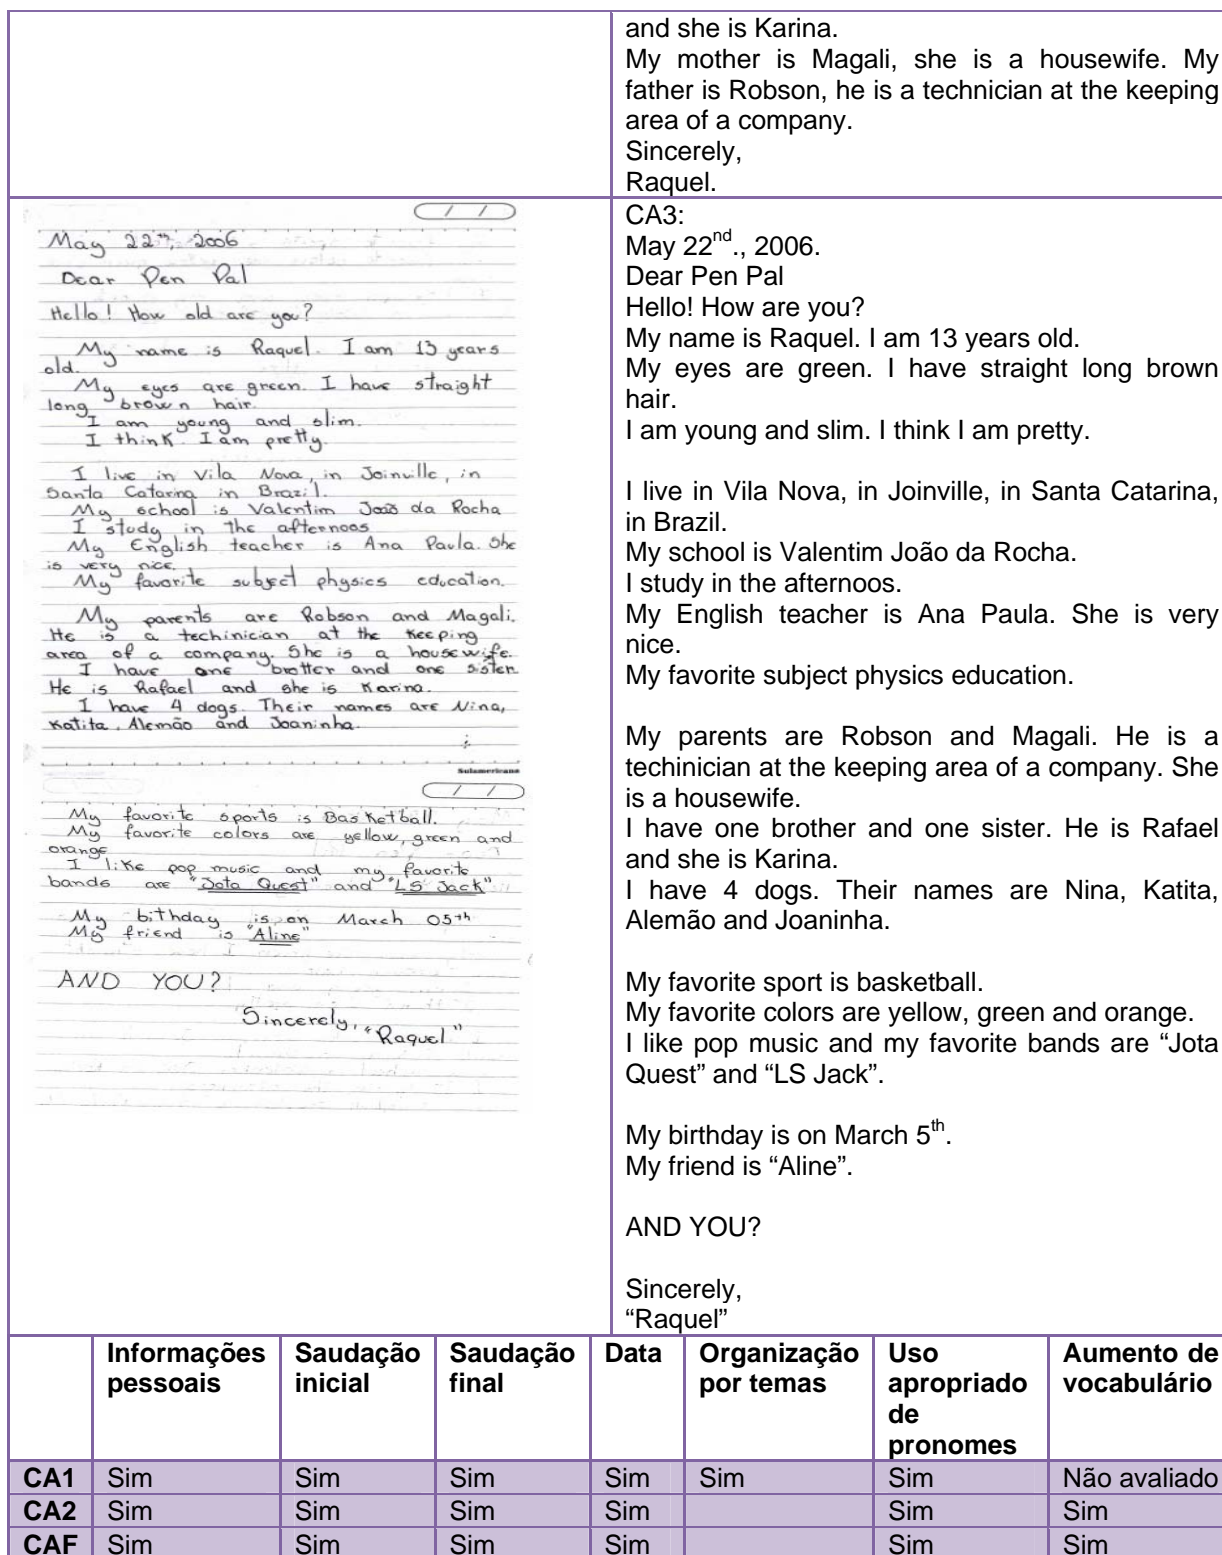 and she is Karina.
My mother is Magali, she is a housewife. My
father is Robson, he is a technician at the keeping
area of a company.
Sincerely,
Raquel.
May 22th, 2006
Dear Pen Pal
Hello! How old are you?
My name is Raquel. I am 13 years
old.
My eyes are green. I have straight
long brown hair.
I am young and slim.
I think I am pretty.
I live in Vila Nova, in Joinville, in
Santa Catarina in Brazil.
My school is Valentim João da Rocha
I study in the afternoos
My English teacher is Ana Paula. She
is very nice.
My favorite subject physics education.
My parents are Robson and Magali.
He is a techinician at the keeping
area of a company. She is a housewife.
I have one brotter and one sister.
He is Rafael and she is Karina.
I have 4 dogs. Their names are Nina,
Katita, Alemão and Joaninha.
Sulamericana
My favorite sports is Basketball.
My favorite colors are yellow, green and
orange
I like pop music and my favorite
bands are "Jota Quest" and "LS Jack"
My bithday is on March 05th
My friend is "Aline"
AND YOU?
Sincerely, "Raquel"
CA3:
May 22nd., 2006.
Dear Pen Pal
Hello! How are you?
My name is Raquel. I am 13 years old.
My eyes are green. I have straight long brown
hair.
I am young and slim. I think I am pretty.
I live in Vila Nova, in Joinville, in Santa Catarina,
in Brazil.
My school is Valentim João da Rocha.
I study in the afternoos.
My English teacher is Ana Paula. She is very
nice.
My favorite subject physics education.
My parents are Robson and Magali. He is a
techinician at the keeping area of a company. She
is a housewife.
I have one brother and one sister. He is Rafael
and she is Karina.
I have 4 dogs. Their names are Nina, Katita,
Alemão and Joaninha.
My favorite sport is basketball.
My favorite colors are yellow, green and orange.
I like pop music and my favorite bands are “Jota
Quest” and “LS Jack”.
My birthday is on March 5th.
My friend is “Aline”.
AND YOU?
Sincerely,
“Raquel”
Informações pessoais | Saudação inicial | Saudação final | Data | Organização por temas | Uso apropriado de pronomes | Aumento de vocabulário
CA1 Sim Sim Sim Sim Sim Sim Não avaliado
CA2 Sim Sim Sim Sim Sim Sim
CAF Sim Sim Sim Sim Sim Sim